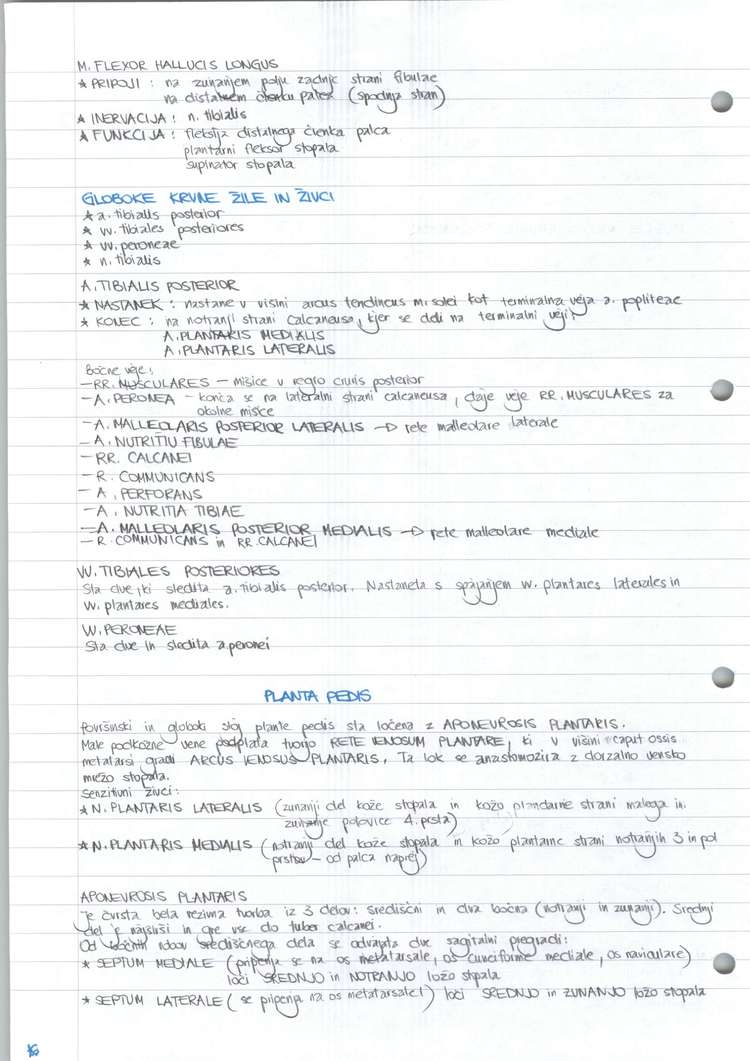 M. FLEXOR HALLUCIS LONGUS
* PRIPOJI : na zunanjem polju zadnje strani fibulae
na distalnem členku palca (spodnja stran)
* INERVACIJA : n. tibialis
* FUNKCIJA : fleksija distalnega členka palca
plantarni fleksor stopala
supinator stopala
GLOBOKE KRVNE ŽILE IN ŽIVCI
* a. tibialis posterior
* vv. tibiales posteriores
* vv. peroneae
* n. tibialis
A. TIBIALIS POSTERIOR
* NASTANEK : nastane v višini arcus tendineus m. solei kot terminalna veja a. popliteae
* KONEC : na notranji strani calcaneusa, kjer se deli na terminalni veji:
A. PLANTARIS MEDIALIS
A. PLANTARIS LATERALIS
Bočne veje:
- RR. MUSCULARES - mišice v regio cruris posterior
- A. PERONEA - konča se na lateralni strani calcaneusa, daje veje RR. MUSCULARES za
okolne mišice
- A. MALLEOLARIS POSTERIOR LATERALIS → rete malleolare laterale
- A. NUTRITIV FIBULAE
- RR. CALCANEI
- R. COMMUNICANS
- A. PERFORANS
- A. NUTRITIA TIBIAE
- A. MALLEOLARIS POSTERIOR MEDIALIS → rete malleolare mediale
- R. COMMUNICANS in RR. CALCANEI
VV. TIBIALES POSTERIORES
Sta dve, ki sledita a. tibialis posterior. Nastaneta s spajanjem vv. plantares laterales in
vv. plantares mediales.
VV. PERONEAE
Sta dve in sledita a. peronei
PLANTA PEDIS
Površinski in globoki sloj plante pedis sta ločena z APONEUROSIS PLANTARIS.
Male podkožne vene podplata tvorijo RETE VENOSUM PLANTARE, ki v višini caput ossis
metatarsi gradi ARCUS VENOSUS PLANTARIS. Ta lok se anastomozira z dorzalno vensko
mrežo stopala.
Senzitivni živci:
* N. PLANTARIS LATERALIS (zunanji del kože stopala in kožo plandarne strani malega in
zunanje polovice 4. prsta)
* N. PLANTARIS MEDIALIS (notranji del kože stopala in kožo plantarne strani notranjih 3 in pol
prstov - od palca naprej)
APONEVROSIS PLANTARIS
Je čvrsta bela vezivna tvorba iz 3 delov: središčni in dva bočna (notranji in zunanji). Srednji
del je najširši in gre vse do tuber calcanei.
Od bočnih robov središčnega dela se odvajata dve sagitalni pregradi:
* SEPTUM MEDIALE (pripenja se na os metatarsale, os cuneiforme mediale, os naviculare)
loči SREDNJO in NOTRANJO ložo stopala
* SEPTUM LATERALE (se pripenja na os metatarsale) loči SREDNJO in ZUNANJO ložo stopala